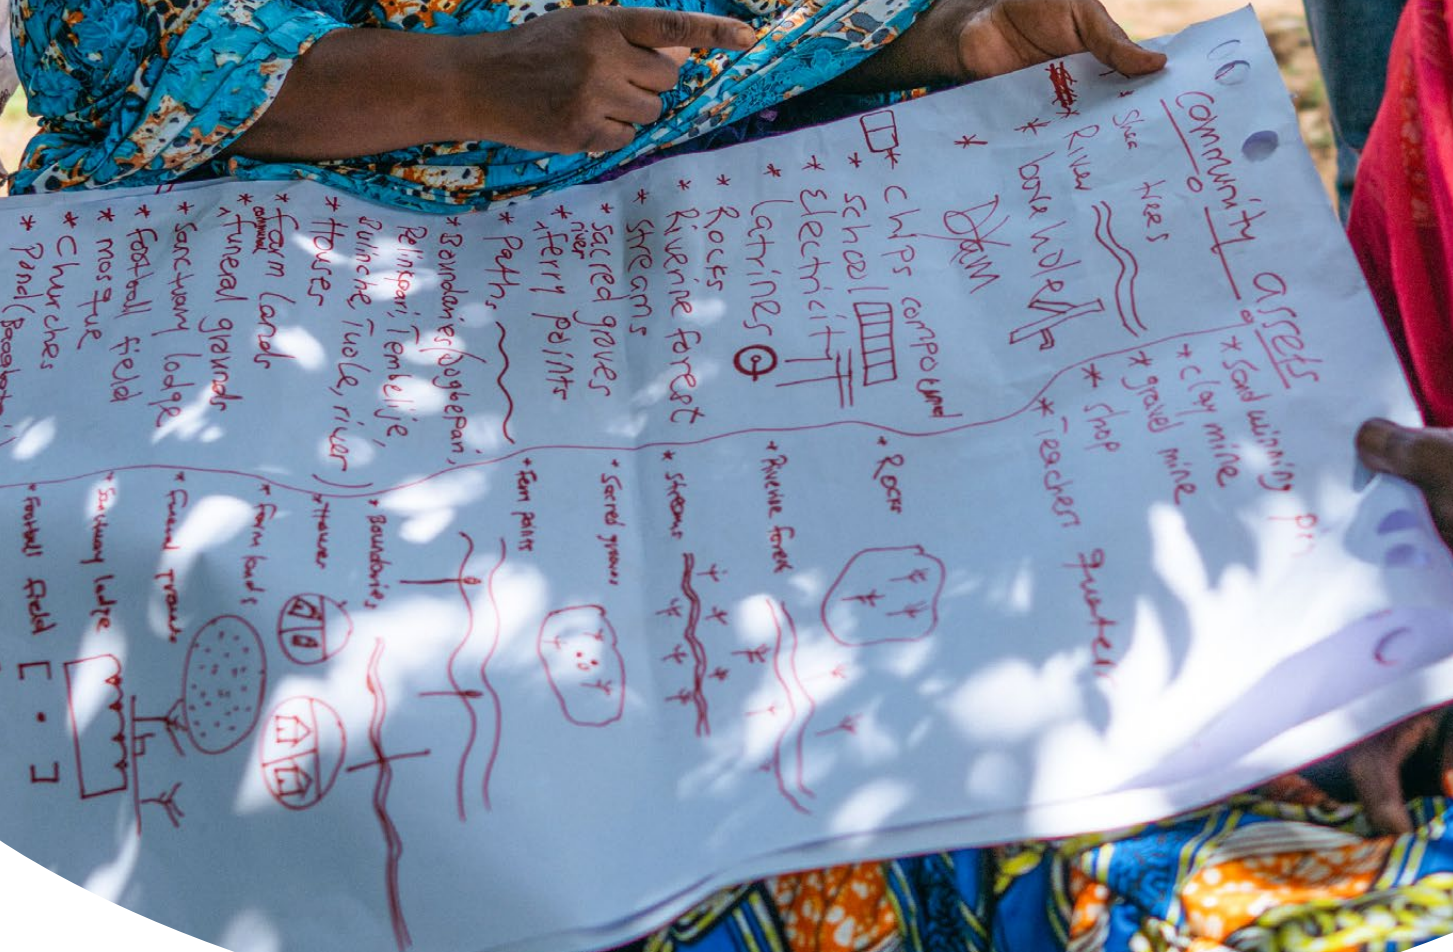 Community assets
* Shea trees
* River
* borehole
* Dam
* chps compound
* School
* Electricity
* Latrines
* Rocks
* Riverine forest
* Streams
* Sacred groves
* river
ferry points
* Paths
* Boundaries
* Houses
* Farm Lands
communal
* funeral grounds
* Sanctuary lodge
* football field
* mosque
* Churches
* Sand winning
* clay mine
* gravel mine
* shop
* Teachers quaters
* Rocks
* Riverine forest
* streams
* Sacred groves
* Ferry points
* Boundaries
* Houses
* Farm lands
* Funeral grounds
* Sanctuary lodge
* Football field